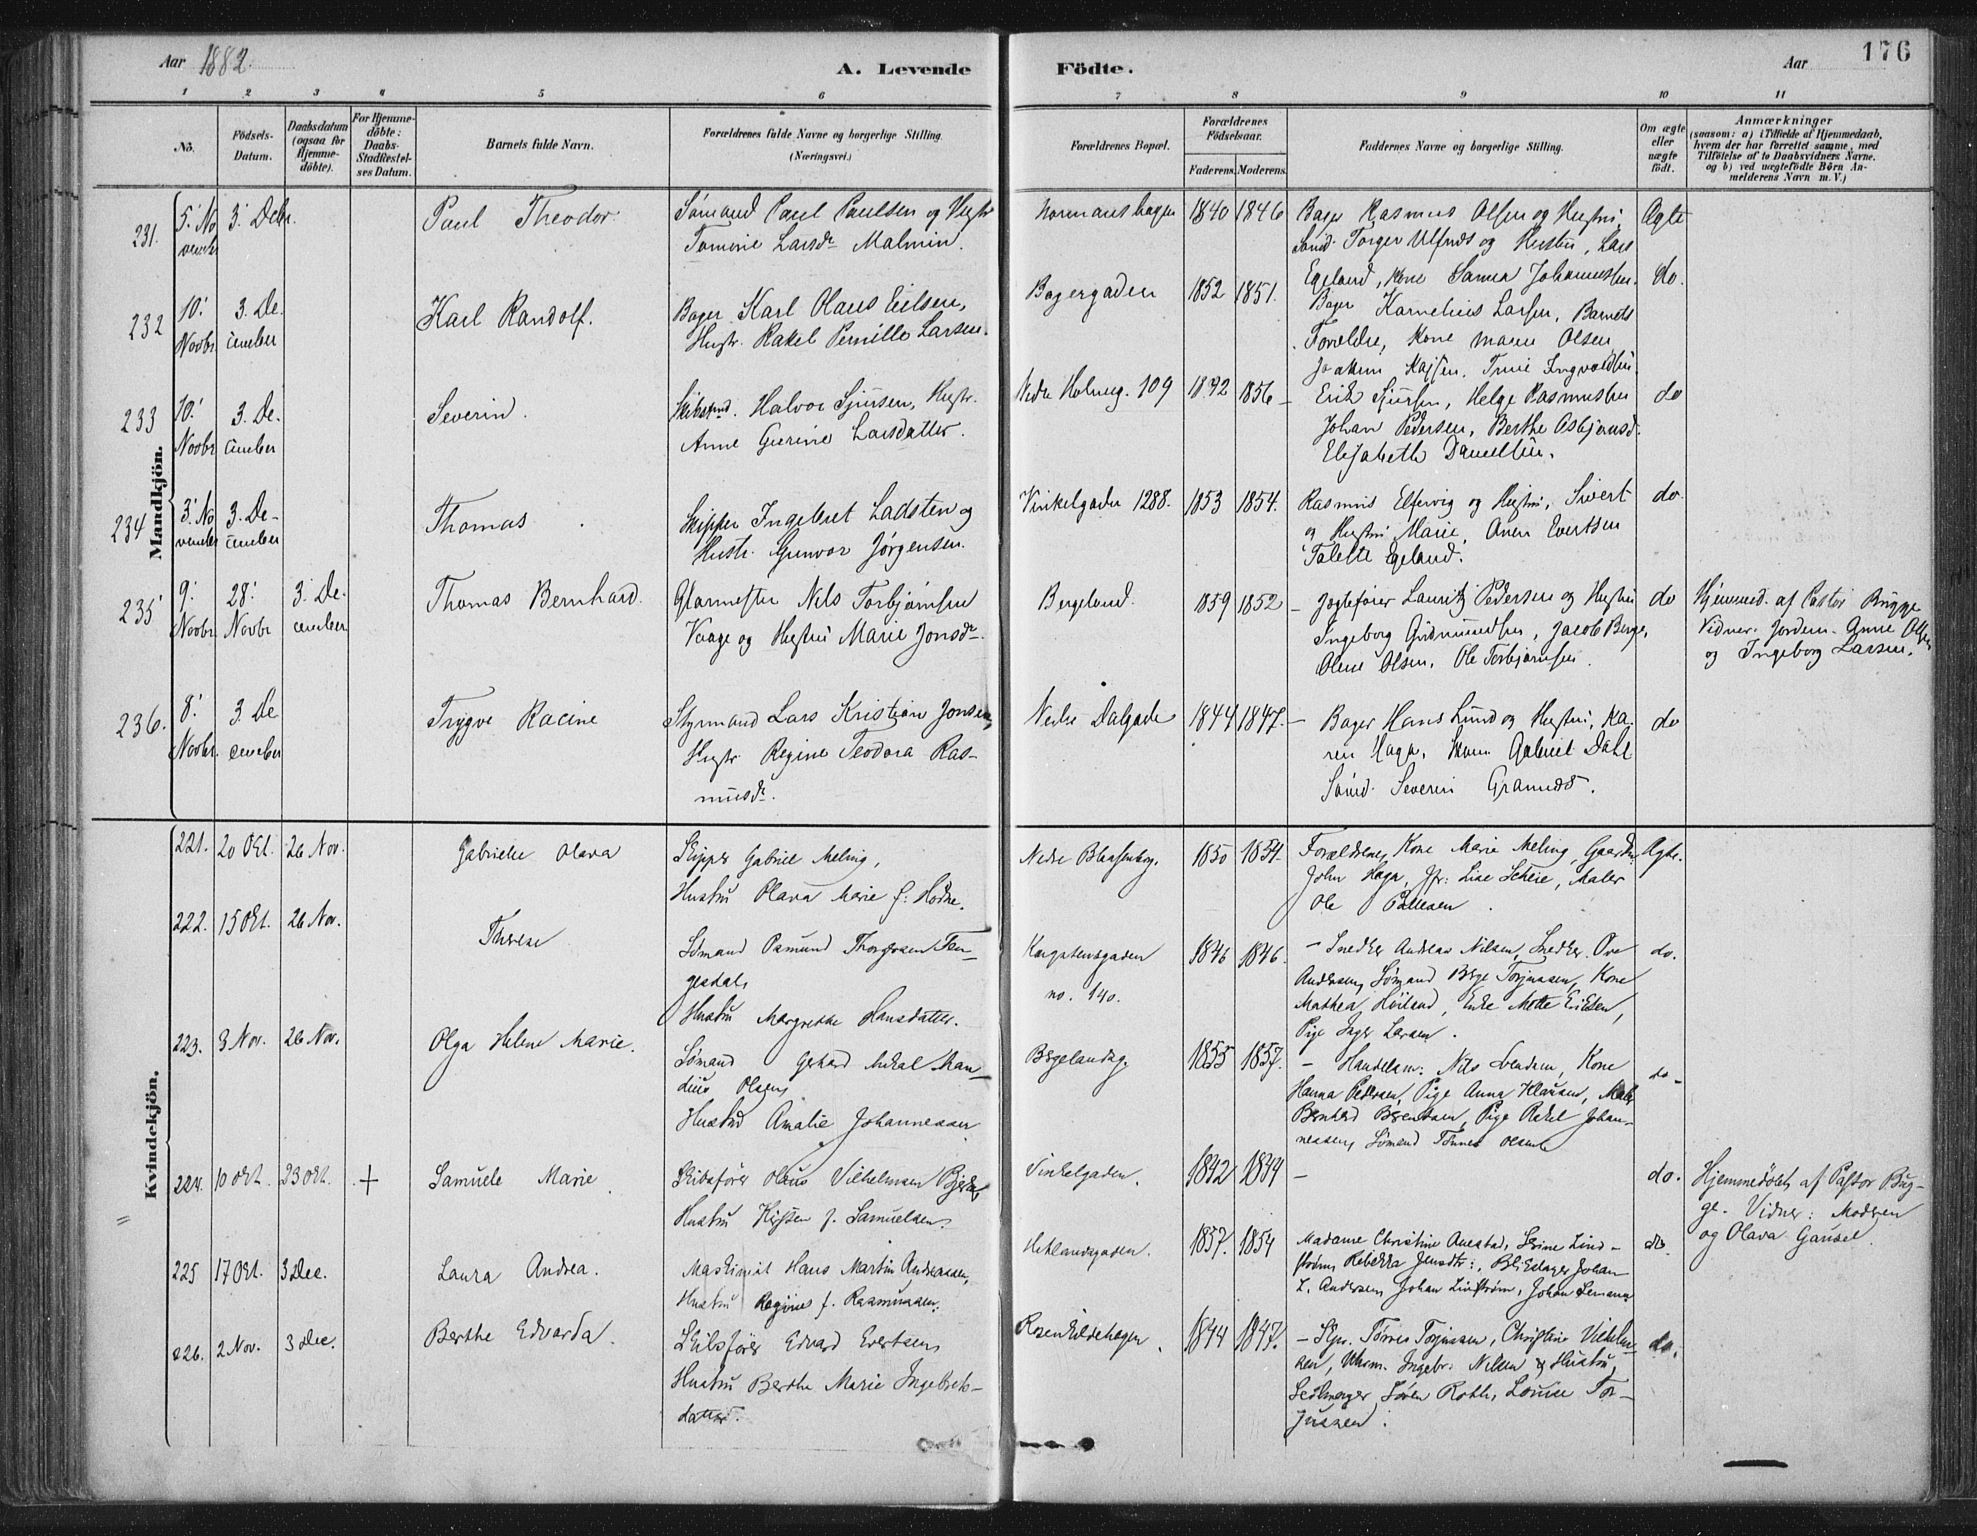 Aar 1882.
A. Levende Födte.
Aar
176
1 2 3 4 5 6 7 8 9 10 11
No.
Födsels-Datum.
Daabsdatum (ogsaa for Hjemme-döbte).
For Hjemme-döbte: Daabs-Stadfæstel-ses Datum.
Barnets fulde Navn.
Forældrenes fulde Navne og borgerlige Stilling.
(Næringsvei.)
Forældrenes Bopæl.
Forældrenes Födselsaar.
Faderens. Moderens.
Faddernes Navne og borgerlige Stilling.
Om ægte eller uægte födt.
Anmærkninger
(saasom: a) i Tilfælde af Hjemmedaab, hvem der har forrettet samme, med Tilföielse af to Daabsvidners Navne, og b) ved uægtefödte Börn Anmelderens Navn m. V.)
Mandkjön.
231. 5. November 3. Decbr. Paul Theodor
Sømand Paul Paulsen og Hustr
Tomine Larsdr Malmin.
Normanshagen 1840 1846
Bager Rasmus Olsen og Hustru,
Sømd. Torger Ulfnes og Hustru, Lars
Egeland, Kone Sanna Johannessen.
Ægte
232 10. Novbr. 3. December Karl Randolf.
Bager Karl Olaus Eilsen,
Hustr. Rakel Pernille Larsen.
Bagergaden 1852 1851.
Bager Kornelius Larsen, Barnets
Forældre, Kone Maren Olsen
do.
233 10. Novbr 3. December Severin.
Halvor Sjursen, Hustr.
Anne Gurine Larsdatter.
Nedre Holmeg. 109 1842 1856
Erik Sjursen, Helge Rasmussen
Johan Pedersen, Berthe Asbjønsd.
Elisabeth Danielsen.
do
234 3. November 3. December Thomas
Skipper Ingebret Ladsten og
Hustr. Gunvor Jørgensen.
Vinkelgaden 1288. 1853 1854.
Rasmus Elfervig og Hustru, Sivert
og Hustru Marie, Aven Evertsen
Talette Egeland.
do
235 9. Novbr 28. Novbr 3. December Thomas Bernhard.
Glarmester Nils Torbjørnsen
Vaage og Hustru Marie Jonsdr.
Bergeland. 1859 1852
Jagtefører Lauritz Pedersen og Hustru
Ingeborg Gudmundsen, Jacob Berge,
Oline Olsen, Ole Torbjørnsen.
do
Hjemmed. af Pastor Bugge
Vidner. Jordem. Anne Olsen
og Ingeborg Larsen.
236. 8. Novbr. 3. December Trygve Racine
Styrmand Lars Kristian Jonsen,
Hustr Regine Teodora Ras-
musdr.
Nedre Dalgade 1844 1847.
Bager Hans Lund og Hustru, Ka-
ren Haga, Skom. Gabriel Dahl
Sømd. Severin Grannes.
do
Kvindekjön.
221. 20 Okt. 26 Nov. Gabrielle Olava
Skipper Gabriel Meling,
Hustru Olava Marie f. Hodne.
Nedre Blaasenborg. 1850 1854.
Forældrene, Kone Marie Meling, Gaardbr.
John Haga, Jfr. Lise Scheie, Maler
Ole
Ægte.
222. 15 Okt. 26 Nov. Therese
Sømand Osmund Thorgersen Ten-
gesdal,
Hustru Margrethe Hansdatter.
Karstensgaden
no. 140.
1846 1846.
Snedker Andreas Nilsen, Snedker Ove
Andersen, Sømand Børge Torjussen, Kone
Mathea Høiland, Enke Mette Eriksen,
Pige Inger Larsen.
do.
223. 3 Nov. 26 Nov. Olga Helene Marie.
Sømand Gerhard Mikal Man-
dius Olsen,
Hustru Amalie Johannessen
Bergelandsg. 1855 1857.
Handelsm: Nils Svendsen, Kone
Hanna Pedersen, Pige Anna Klausen, Maler
Bernhard Berentsen, Pige Rakel Johan-
nessen, Sømand Tønnes Olsen
do
224. 10 Okt. 23 Okt. + Samuele Marie
Skibsfører Olaus Vilhelmsen Bjerke
Hustru Kirsten f. Samuelsen.
Vinkelgaden. 1842 1844
do.
Hjemmedøbt af Pastor Bug-
ge. Vidner: Moderen
og Olava Gausel.
225 17 Okt. 3 Dec. Laura Andrea.
Maskinist Hans Martin Andreassen,
Hustru Regine f. Rasmussen.
Hetlandsgaden. 1857. 1854
Madame Christine Auestad, Lind-
strøm, Rebekka Jensdtr:, Blikslager Johan
L. Andersen, Johan Lindstrøm, Johan
do.
226. 2 Nov. 3 Dec. Berthe Edvarda.
Skibsfører Edvard Evertsen
Hustru Berthe Marie Ingebrets-
datter.
Rosenkildehagen. 1844 1847.
Skpr. Tørres Torjussen, Christine Vilhelm-
sen, Uhrm. Ingebr. Nilsen & Hustru,
Seilmager Søren Roth, Louise Tor-
jussen.
do.